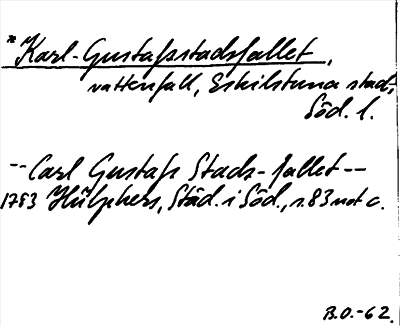 *Karl-Gustafsstadsfallet,
vattenfall, Eskilstuna stad,
Söd. l.
-- Carl Gustafs Stads-fallet --
1783 Hülphers, Städ. i Söd., s. 83 not c.
B.O.-62.